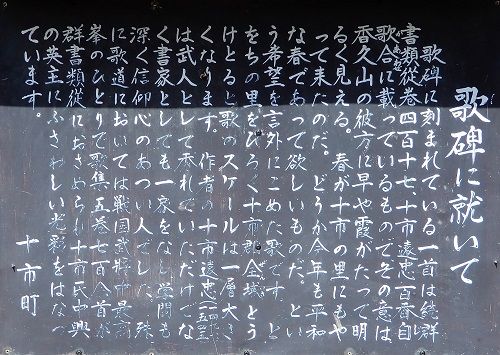 歌碑に就いて
歌碑に刻まれている一首は続群
書類従巻四百十七、十市遠忠百番自
歌合に載っているものでその意は
香久山の彼方に早や霞がたって明
るく見える。春が十市の里にもや
って来たのだ、どうか今年も平和
な春であって欲しいものだ、とい
う希望を言外にこめた歌です、と
をちの里をひろく十市郡全域とう
けとると歌のスケールは一層大き
くなります。作者の十市遠忠
は武人として秀れていただけでな
く書家としても一家をなし学問も
深く信仰心のあつい人でした、殊
に歌道においては戦国武将中最高
峯のひとりで歌集五巻七百余首が
群書類従におさめられ十市氏中興
の英主にふさわしい光彩をはなっ
ています。
十市町